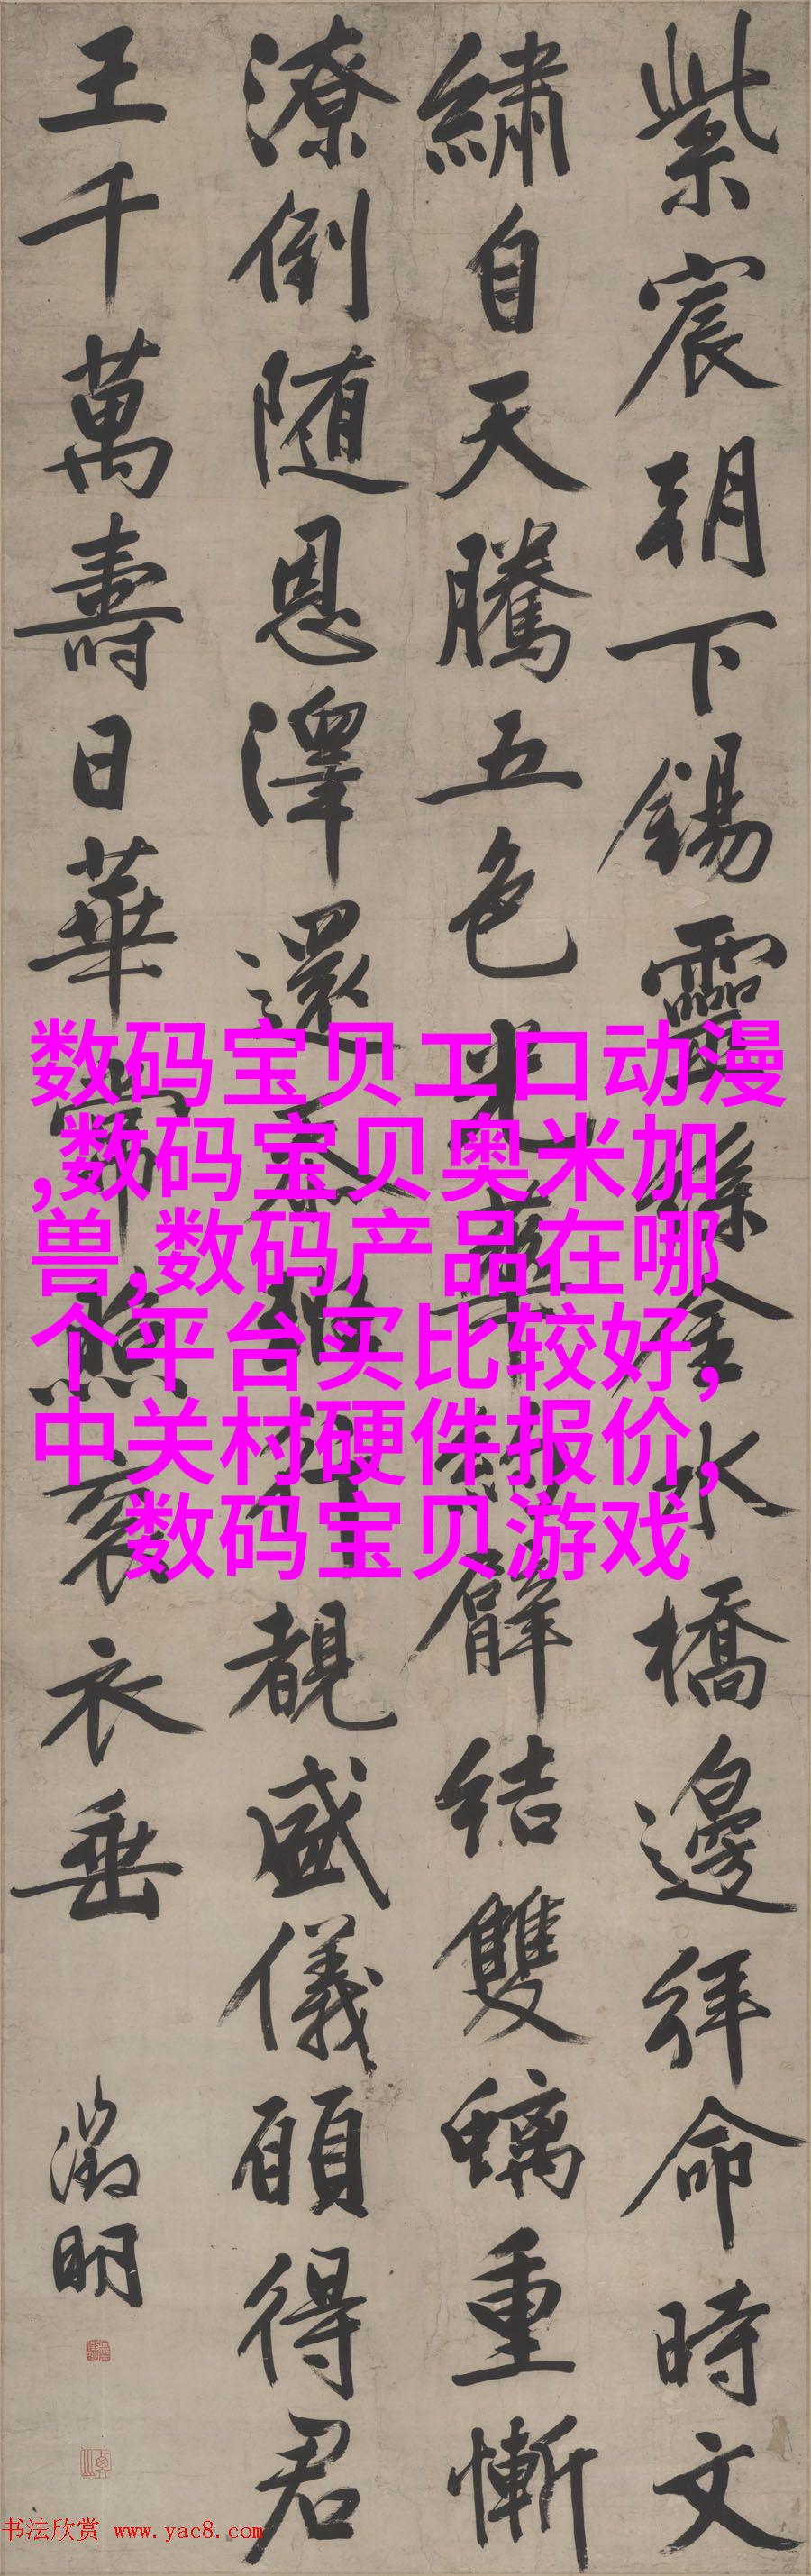 紫宸朝下錫靈絲金水橋邊拜命時文
繡自天騰五色光華臂結雙螭重慚
潦倒随恩澤還行覩盛儀願得君
王千萬壽日華常照袞衣垂
徵明
数码宝贝工口动漫
,数码宝贝奥米加
兽,数码产品在哪
个平台买比较好,
中关村硬件报价,
数码宝贝游戏
书法欣赏 www.yac8.com